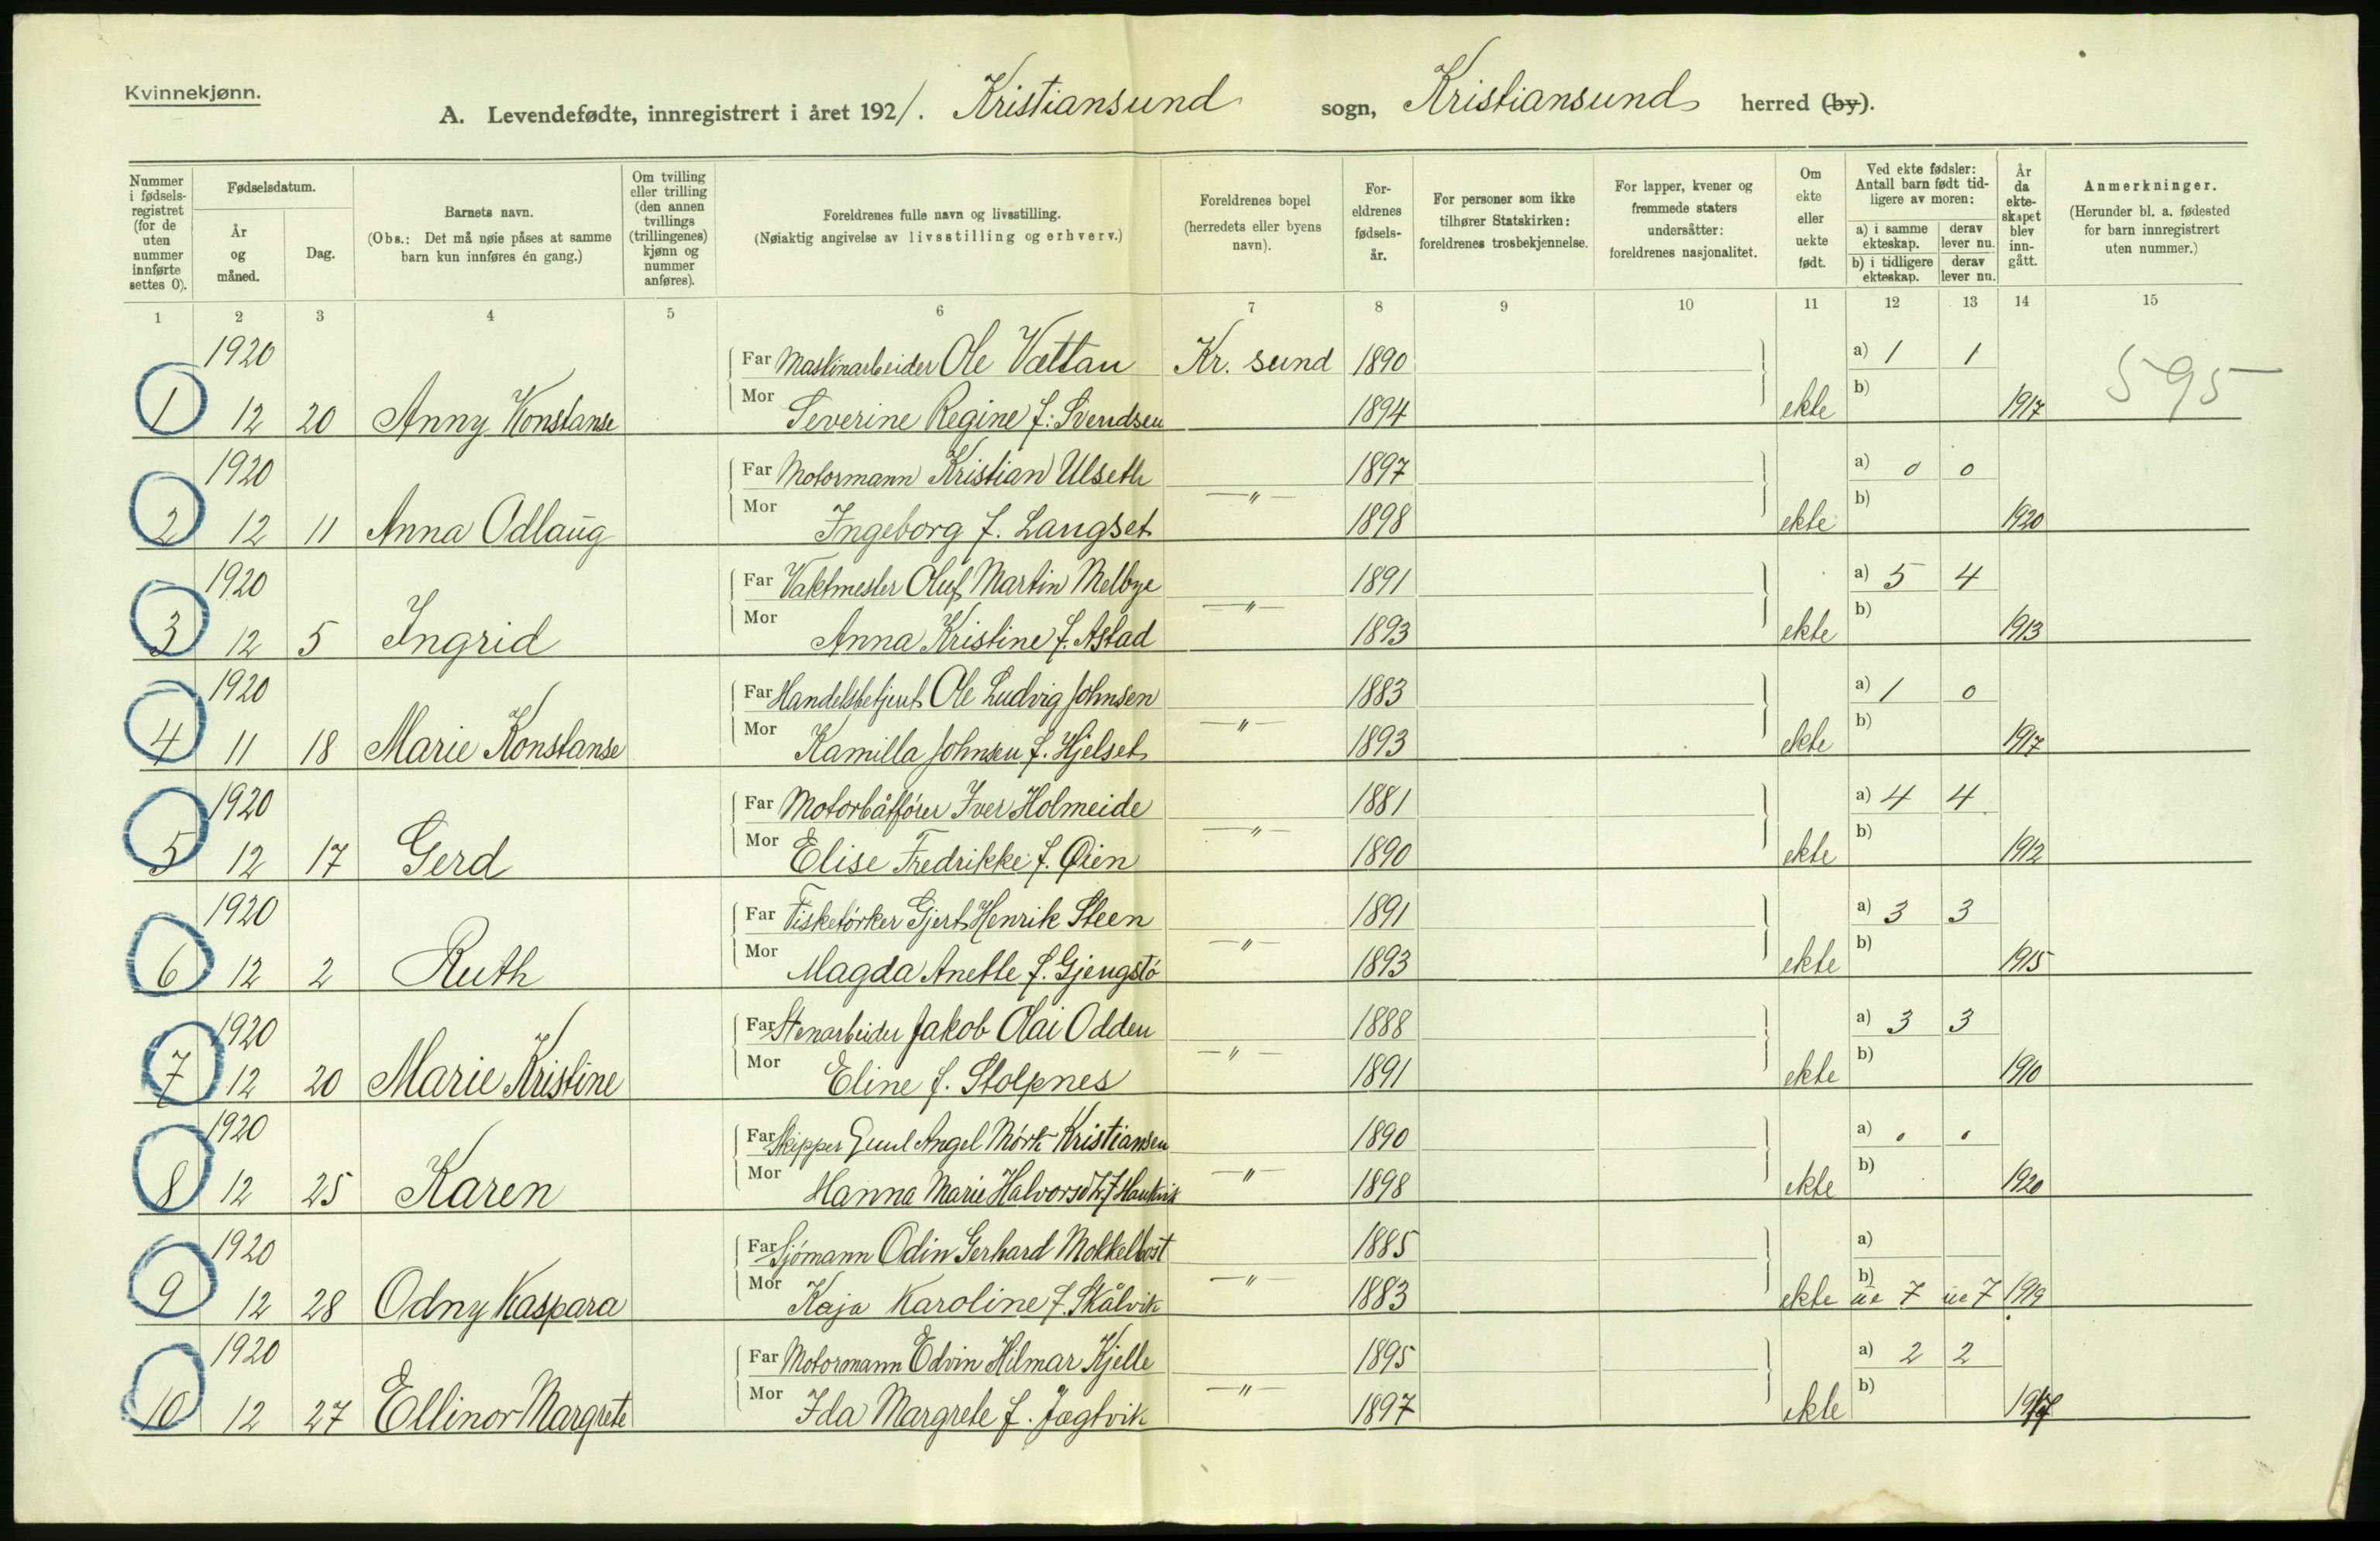 Kvinnekjønn.
A. Levendefødte, innregistrert i året 1921. Kristiansund sogn, Kristiansund herred (by).
Nummer i fødsels-registret (for de uten nummer innførte settes 0).
Fødselsdatum.
År og måned.
Dag.
Barnets navn.
(Obs.: Det må nøie påses at samme barn kun innføres én gang.)
Om tvilling eller trilling (den annen tvillings (trillingenes) kjønn og nummer anføres).
Foreldrenes fulle navn og livsstilling.
(Nøiaktig angivelse av livsstilling og erhverv.)
Foreldrenes bopel (herredets eller byens navn).
For-eldrenes fødsels-år.
For personer som ikke tilhører Statskirken: foreldrenes trosbekjennelse.
For lapper, kvener og fremmede staters undersåtter: foreldrenes nasjonalitet.
Om ekte eller uekte født.
Ved ekte fødsler: Antall barn født tid-ligere av moren:
a) i samme ekteskap. derav lever nu.
b) i tidligere ekteskap. derav lever nu.
År da ekte-skapet blev inn-gått.
Anmerkninger.
(Herunder bl. a. fødested for barn innregistrert uten nummer.)
1 2 3 4 5 6 7 8 9 10 11 12 13 14 15
1920 Far Maskinarbeider Ole Vættan Kr. sund 1890 a) 1 1
1 12 20 Anny Konstanse Mor Severine Regine f. Svendsen 1894 ekte b) 1917 595
1920 Far Motormann Kristian Ulseth 1897 a) 0 0
2 12 11 Anna Odlaug Mor Ingeborg f. Langset —"— 1898 ekte b) 1920
1920 Far Vaktmester Oluf Martin Melbye 1891 a) 5 4
3 12 5 Ingrid Mor Anna Kristine f. Astad —"— 1893 ekte b) 1913
1920 Far Handelsbetjent Ole Ludvig Johnsen 1883 a) 1 0
4 11 18 Marie Konstanse Mor Kamilla Johnsen f. Hjelset —"— 1893 ekte b) 1917
1920 Far Motorbåtfører Iver Holmeide 1881 a) 4 4
5 12 17 Gerd Mor Elise Fredrikke f. Øien —"— 1890 ekte b) 1912
1920 Far Fisketørker Gjert Henrik Steen 1891 a) 3 3
6 12 2 Ruth Mor Magda Anette f. Gjengstø —"— 1893 ekte b) 1915
1920 Far Stenarbeider Jakob Olai Odden 1888 a) 3 3
7 12 20 Marie Kristine Mor Eline f. Stolpnes —"— 1891 ekte b) 1910
1920 Far Skipper Angel Mørk Kristiansen 1890 a) 0 0
8 12 25 Karen Mor Hanna Marie f. —"— 1898 ekte b) 1920
1920 Far Sjømann Odin Gerhard Mokkelbost 1885 a)
9 12 28 Odny Kaspara Mor Kaja Karoline f. Skålvik —"— 1883 ekte b) ue 7 ue 7 1919
1920 Far Motormann Edvin Hilmar Kjelle 1895 a) 2 2
10 12 27 Ellinor Margrete Mor Ida Margrete f. Jægtvik —"— 1897 ekte b)